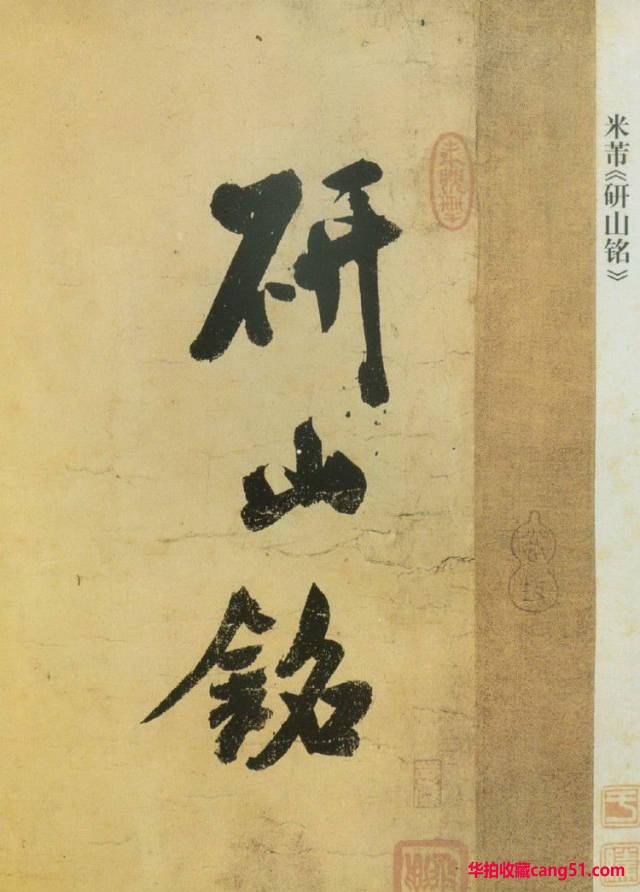 米芾《研山铭》
研
山
銘
华拍收藏cang51.com